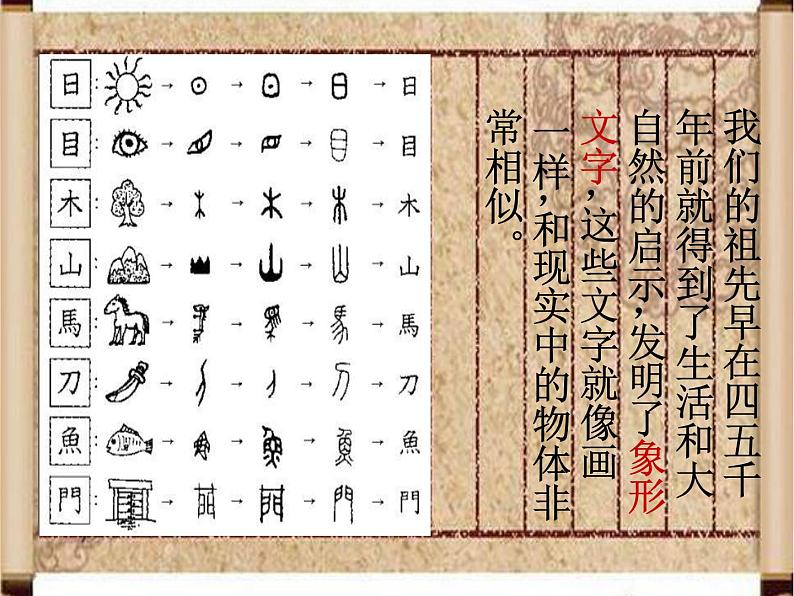 我们的祖先早在四五千
年前就得到了生活和大
自然的启示,发明了象形
文字,这些文字就像画
一样,和现实中的物体非
常相似。
日 : → → → → 日
目 : → → → → 目
木 : → → → → 木
山 : → → → → 山
馬 : → → → → 馬
刀 : → → → → 刀
魚 : → → → → 魚
門 : → → → → 門